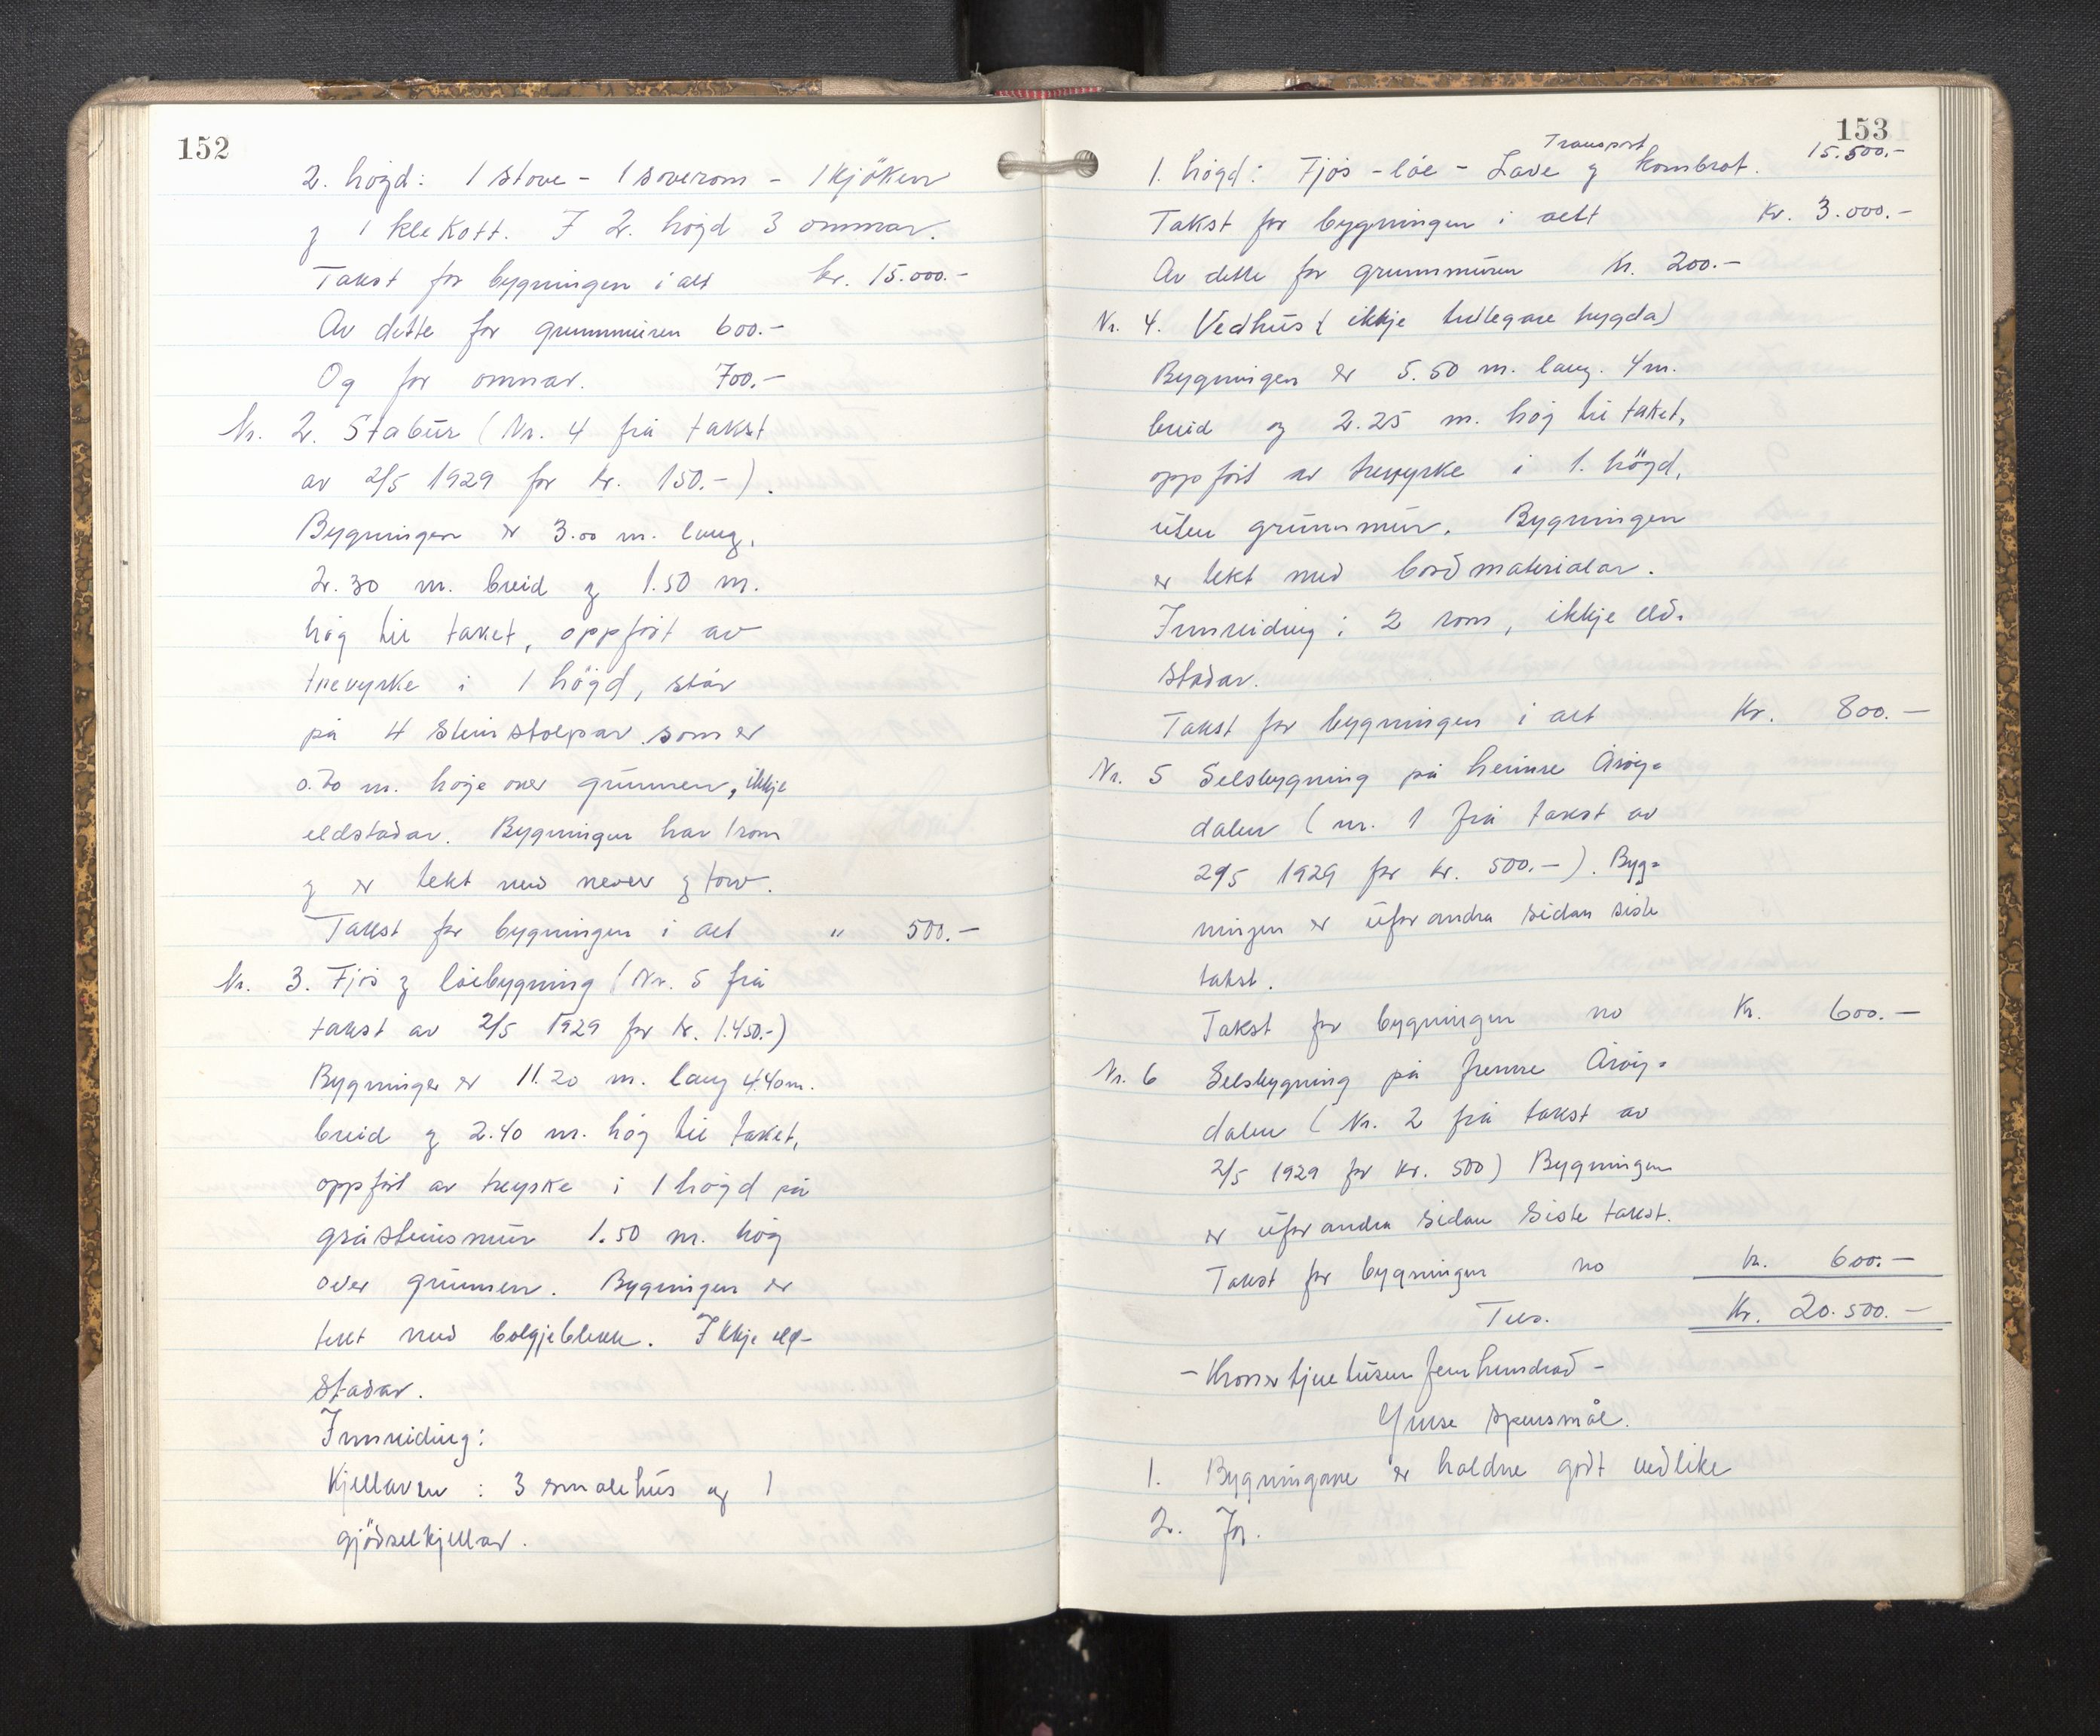 152
2. högd: 1 stove - 1 soverom - 1 kjöken
og 1 klekott. I 2. högd 3 omnar.
Takst for bygningen i alt kr. 15.000.-
Av dette for grunnmuren 600.-
Og for omnar. 700.-
Nr. 2. Stabur (Nr. 4 frå takst
av 2/5 1929 for kr. 150.-).
Bygningen er 3.00 m. lang,
2.30 m. breid og 1.50 m.
hög til taket, oppfört av
trevyrke i 1 högd, står
på 4 steinstolpar som er
m. höje over grunnen, ikkje
eldstadar. Bygningen har 1 rom
og er tekt med never og torv.
Takst for bygningen i alt " 500.-
Nr. 3. Fjös og löebygning (Nr. 5 frå
takst av 2/5 1929 for kr. 1.450.-)
Bygningen er 11.20 m. lang 4.40 m.
breid og 2.40 m. hög til taket,
oppfört av treyrke i 1 högd på
gråsteinsmur 1.50 m. hög
over grunnen. Bygningen er
tekt med bolgjeblekk. Ikkje eld-
stadar.
Innreiding:
Kjellaren : 3 smalehus og 1
gjödselkjellar.
153
Transport 15.500.-
1. högd: Fjös - löe - Lave og kombrot.
Takst for bygningen i alt Kr. 3.000.-
Av dette for grunnmuren kr. 200.-
Nr. 4. Vedhus (ikkje tidlegare bygda)
Bygningen er 5.50 m. lang. 4 m.
breid og 2.25 m. hög til taket,
oppfört av trevyrke i 1. högd,
uten grunnmur. Bygningen
er tekt med bordmaterialar.
Innreiding: 2 rom, ikkje eld-
stadar.
Takst for bygningen i alt Kr. 800.-
Nr. 5 Selsbygning på heimre Åröy=
dalen (nr. 1 frå takst av
2/5 1929 for kr. 500.-). Byg=
ningen er uforandra sidan siste
takst.
Takst for bygningen no Kr. 600.-
Nr. 6 Selsbygning på fremre Åröy=
dalen (Nr. 2 frå takst av
2/5 1929 for kr. 500) Bygningen
er uforandra sidan siste takst.
Takst for bygningen no kr. 600.-
Tils. Kr. 20.500.-
- Kroner tjue tusen fem hundrad -
Ymse spursmål.
1. Bygningane er haldne godt vedlike
2. Ja.